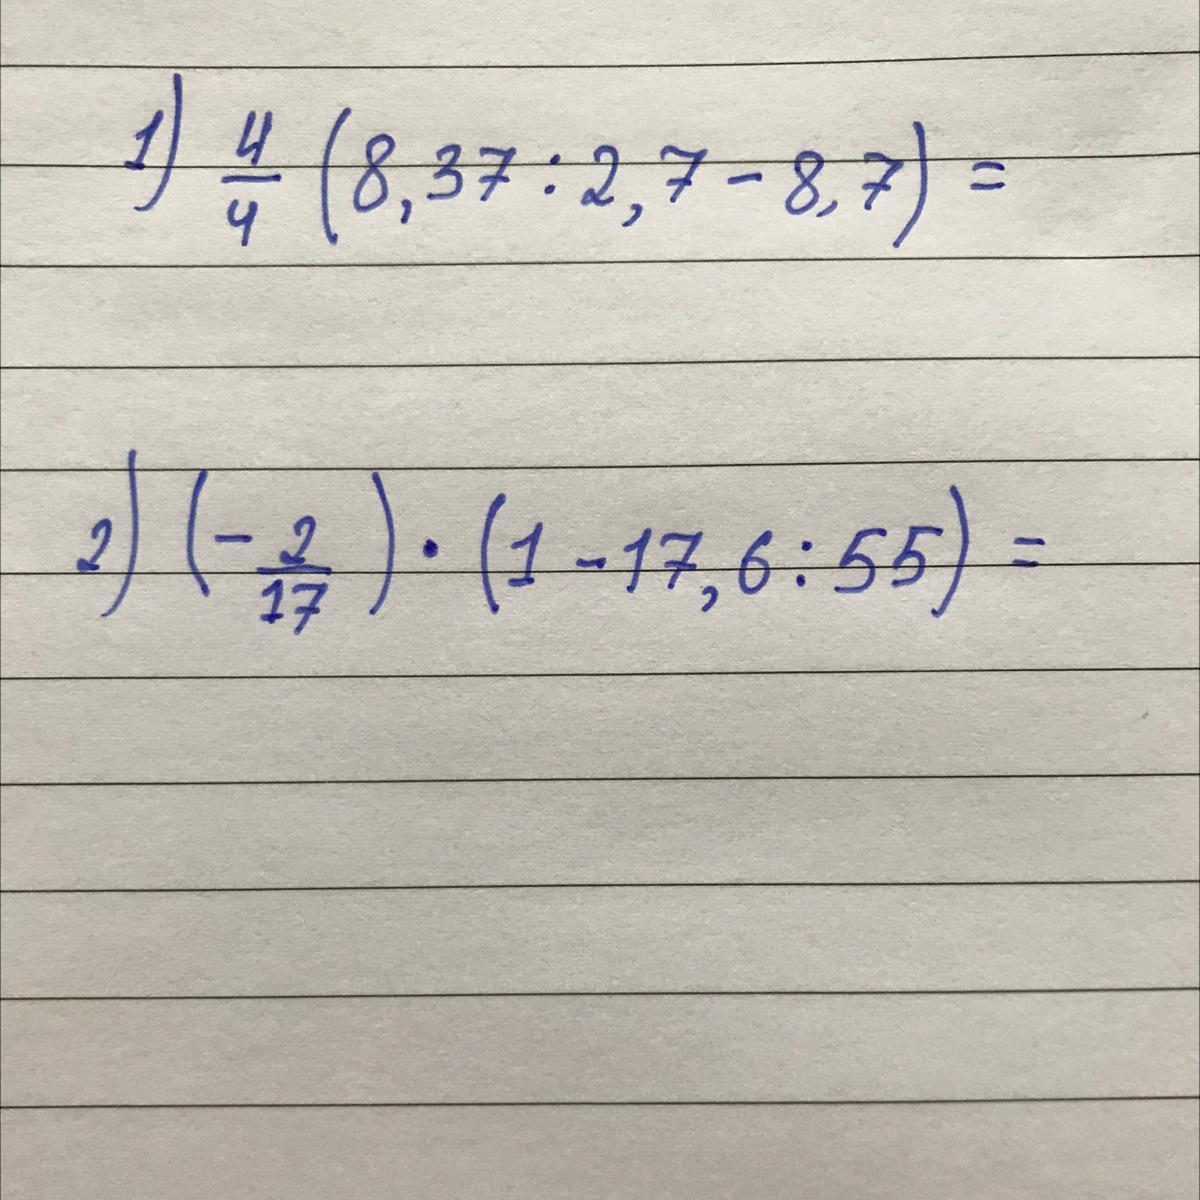 1) 4/4 (8,37 : 2,7 - 8,7) =
2) (- 2/17) · (1 - 17,6 : 55) =